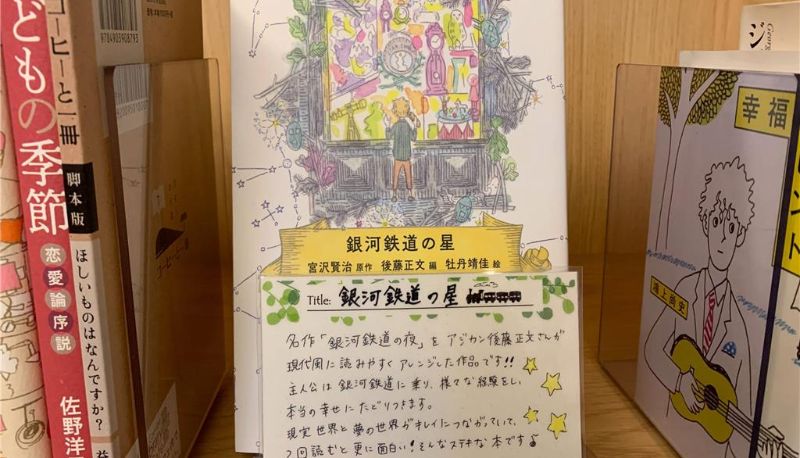 9784903908793
どもの季節
恋愛論序説
佐野洋
コーヒーと一冊
脚本版
ほしいものはなんですか?
益
銀河鉄道の星
宮沢賢治 原作 後藤正文 編 牡丹靖佳 絵
Title: 銀河鉄道の星
名作「銀河鉄道の夜」を アジカン後藤正文さんが
現代風に読みやすく アレンジした作品です!!
主人公は 銀河鉄道に乗り、様々な経験をし、
本当の幸せにたどりつきます。
現実世界と夢の世界がキレイにつながっていて、
2回読むと更に面白い!そんなステキな本です♪
幸福
鴻上尚史
ヒント
ジ
Georg